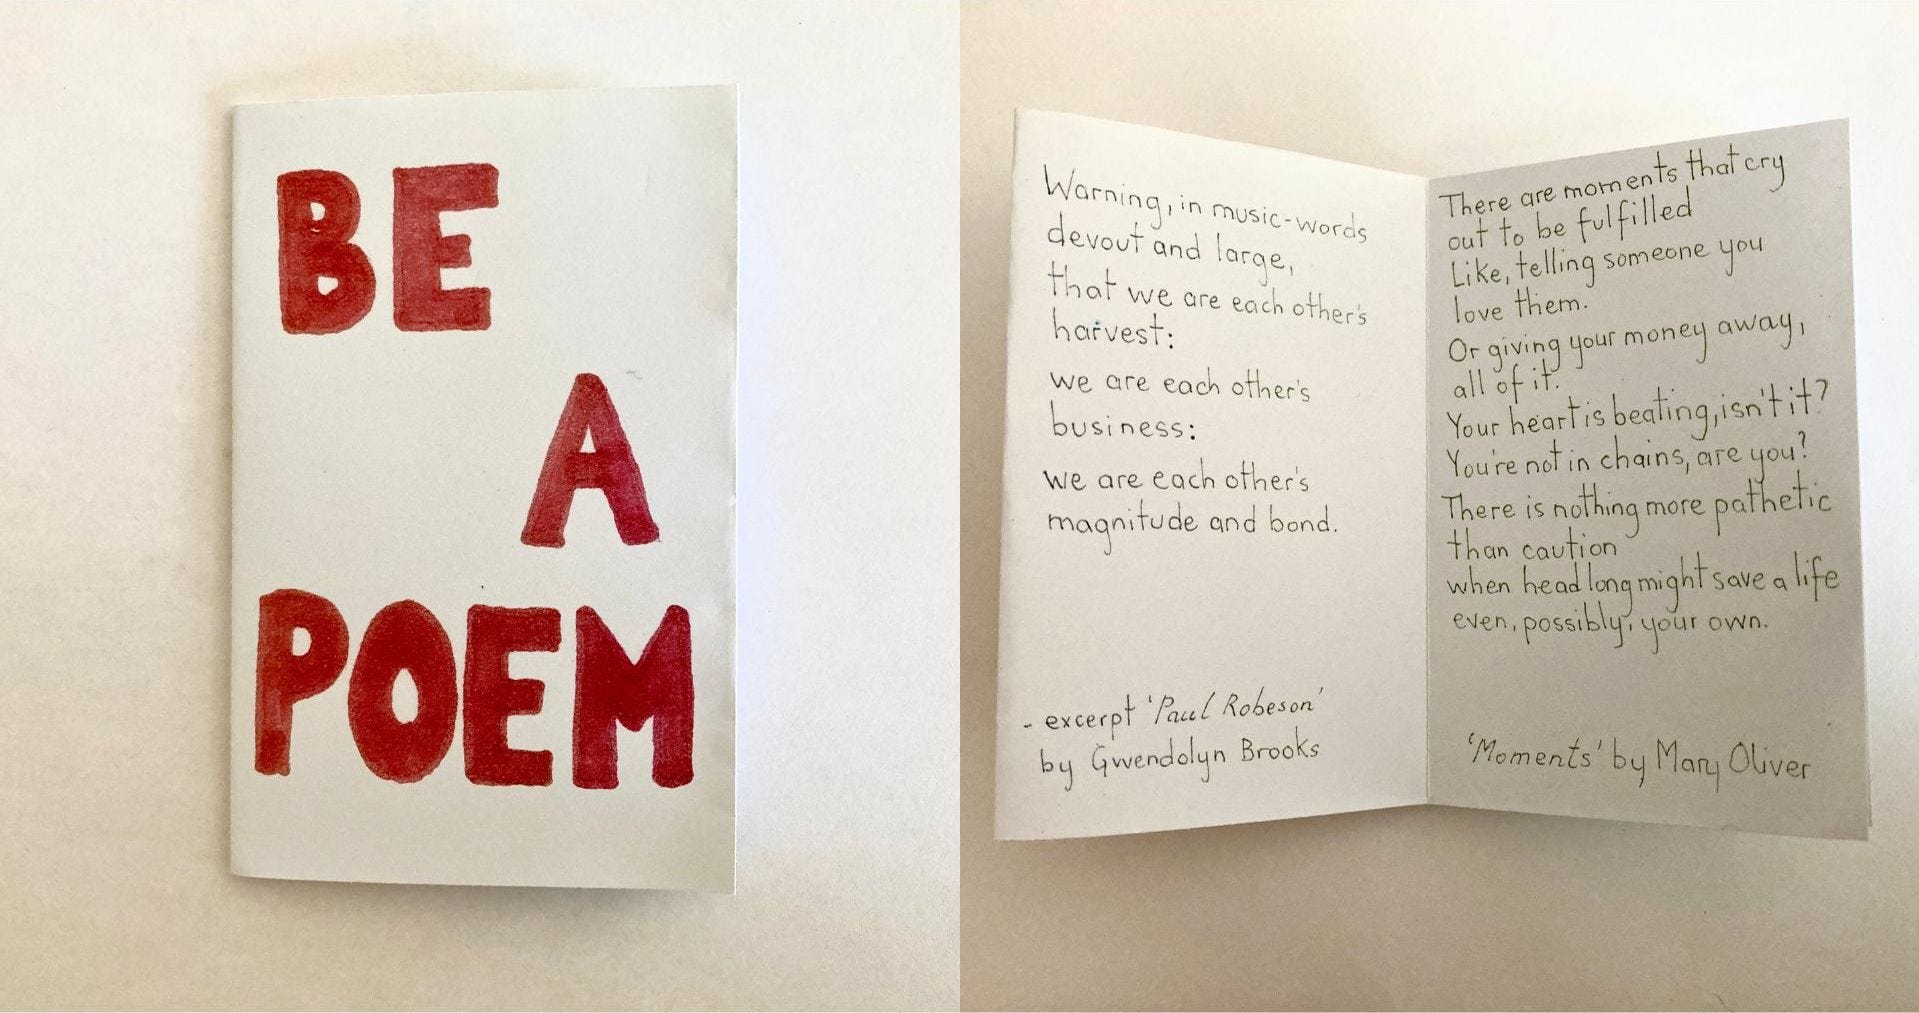 BE
A
POEM
Warning, in music-words
devout and large,
that we are each other's
harvest:
we are each other's
business:
we are each other's
magnitude and bond.
- excerpt 'Paul Robeson'
by Gwendolyn Brooks
There are moments that cry
out to be fulfilled
Like, telling someone you
love them.
Or giving your money away,
all of it.
Your heart is beating, isn't it?
You're not in chains, are you?
There is nothing more pathetic
than caution
when headlong might save a life
even, possibly, your own.
'Moments' by Mary Oliver